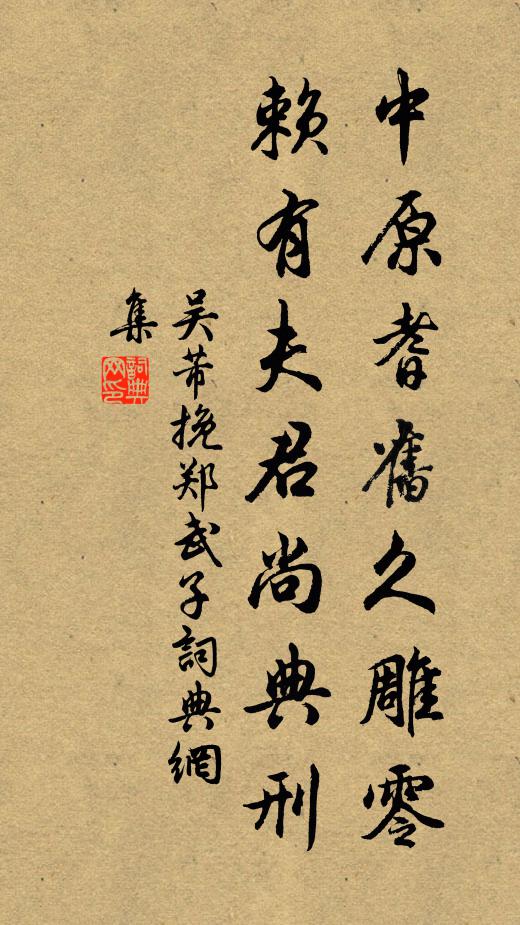 中原耆舊久雕零
賴有夫君尚典刑
吴芾挽郑武子詞典網
集
詞典
网印